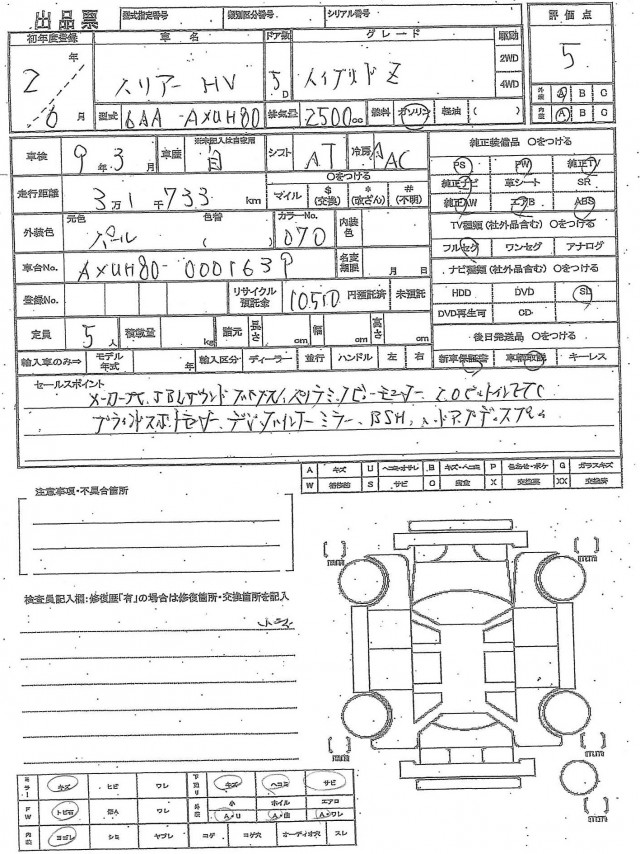 出品票 型式指定番号 類別区分番号 シリアル番号 評価点
初年度登録 車名 ドア数 グレード 駆動 5
2年 ハリアー HV 5D ハイブリッドZ 2WD 4WD
6月 型式 6AA-AXUH80 排気量 2500cc 燃料 ガソリン 軽油 ( )
外装 A B C
内装 A B C
車検 9年3月 車歴 ※未記入は自家用 自 シフト AT 冷房 AAC
純正装備品 ○をつける
PS PW 純正TV
純正ナビ 革シート SR
純正AW エアB ABS
走行距離 3万1千733km ○をつける マイル $(交換) *(改ざん) #(不明)
TV種類(社外品含む) ○をつける
フルセグ ワンセグ アナログ
外装色 元色 パール 色替 ( ) カラーNo. 070 内装色
車台No. AXUH80-0001639 名変期限 月 日
ナビ種類(社外品含む) ○をつける
HDD DVD SD
DVD再生可 CD
登録No. リサイクル預託金 10510 円預託済 未預託
定員 5人 積載量 kg 諸元 長さ cm 幅 cm 高さ cm
後日発送品 ○をつける
新車保証書 車輌取説 キーレス
輸入車のみ⇒ モデル年式 年 輸入区分 ディーラー 並行 ハンドル 左 右
セールスポイント
ブラインドスポットモニター、デジタルインナーミラー、BSM、ヘッドアップディスプレイ
A キズ U ヘコミ・オサレ B キズ・ヘコミ P 色あせ・ボケ G ガラスキズ
W 補修跡 S サビ C 腐食 X 交換要 XX 交換済
注意事項・不具合箇所
検査員記入欄:修復歴「有」の場合は修復箇所・交換箇所を記入
ミラー キズ ヒビ ワレ 下廻り キズ ヘコミ サビ
FW トビ石 傷A ワレ 外装 小 A・U ホイル A・傷 エアロ A・ワレ
内装 ヨゴレ シミ ヤブレ コゲ コゲ穴 オーディオ穴 スレ